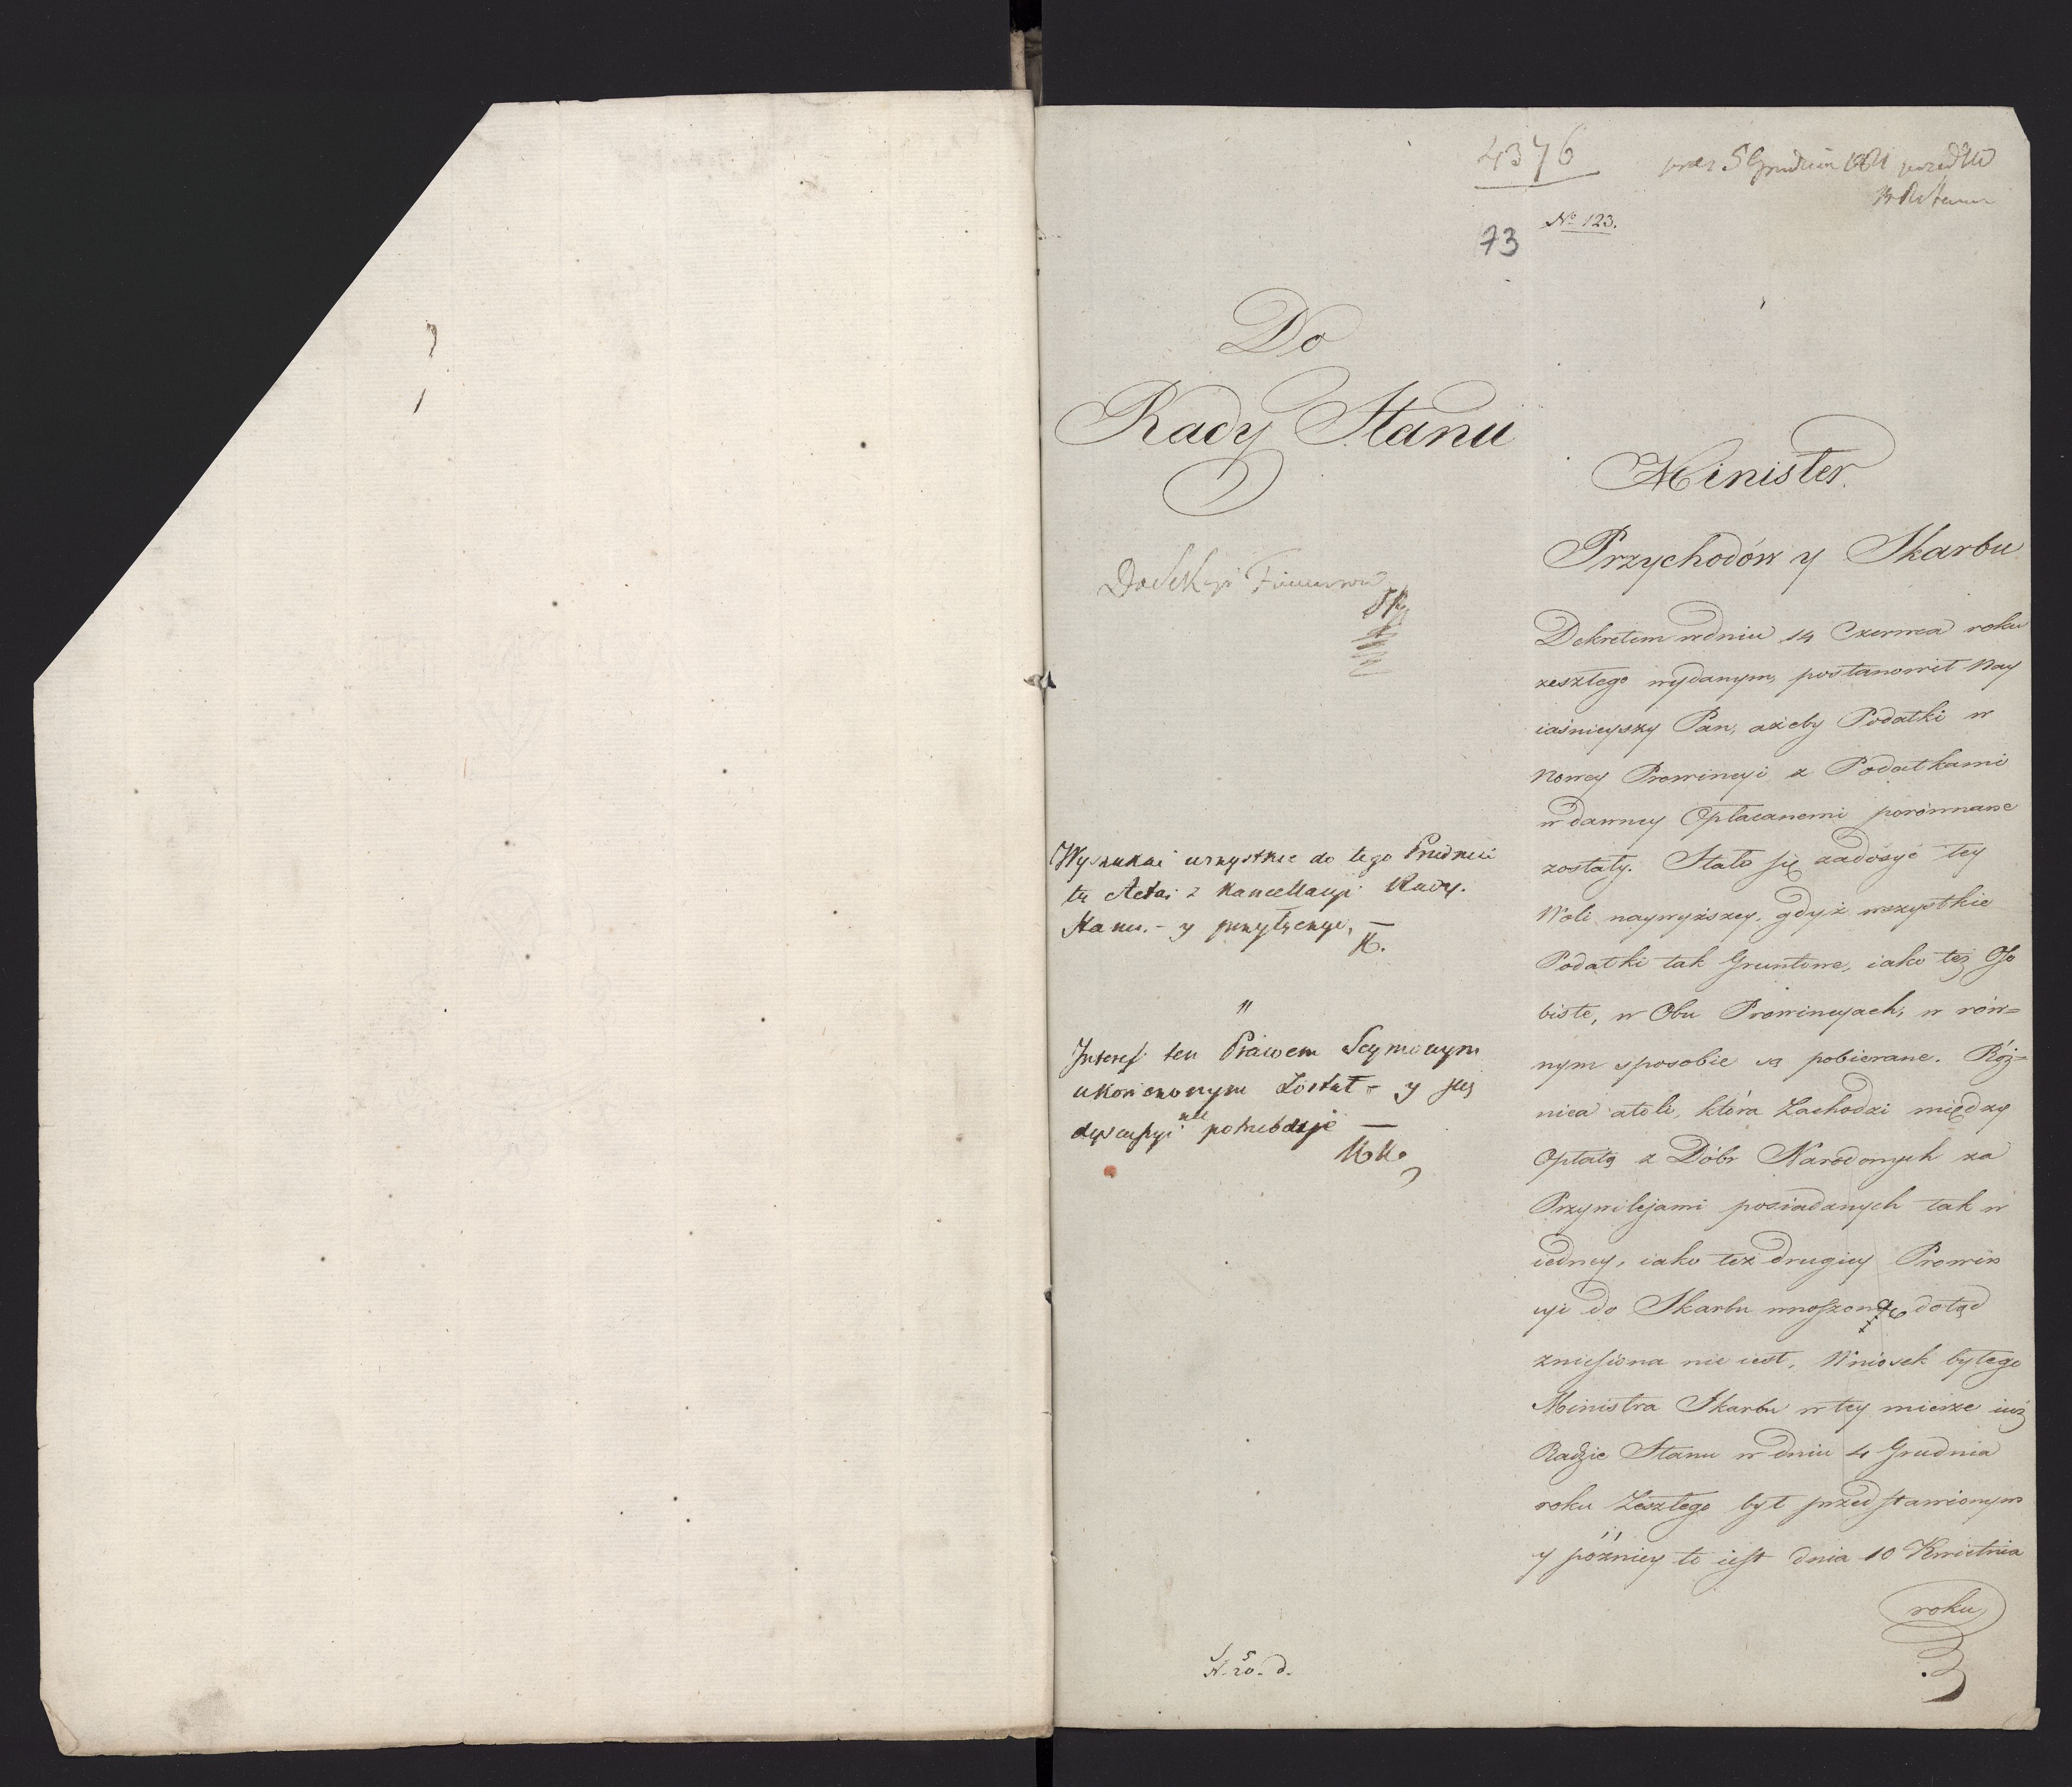 4376
praes 5 Grudnia 1811
No 123.
73
Do
Rady Stanu
Do Sekcyi
Wyszukać wszystkie do tego Przedmio
tu Acta z Kancellaryi Rady
Stanu. - y przyłączyć, —
Interess ten Prawem Seymowym
ukończonym został - y już
dyscussyi nie potrzebuje —
N. 20. d.
Minister
Przychodów y Skarbu
Dekretem w dniu 14 Czerwca roku
zeszłego wydanym, postanowił Nay
iaśnieyszy Pan, ażeby Podatki w
Nowey Prowincyi z Podatkami
w dawney Opłacanemi porównane
zostały. Stało się zadosyć tey
Woli naywyższey, gdyż wszystkie
Podatki tak Gruntowe, iako też Oso
biste, w Obu Prowincyach, w rów=
nym sposobie są pobierane. Róż=
nica atoli, która Zachodzi między
Opłatą z Dóbr Narodowych za
Przywilejami posiadanych tak w
iedney, iako też drugiey Prowin
cyi do Skarbu wnoszoną dotąd
zniesiona nie iest, Wniosek byłego
Ministra Skarbu w tey mierze iuż
Radzie Stanu w dniu 4 Grudnia
roku Zeszłego był przedstawionym
y poźniey to iest dnia 10 Kwietnia
roku